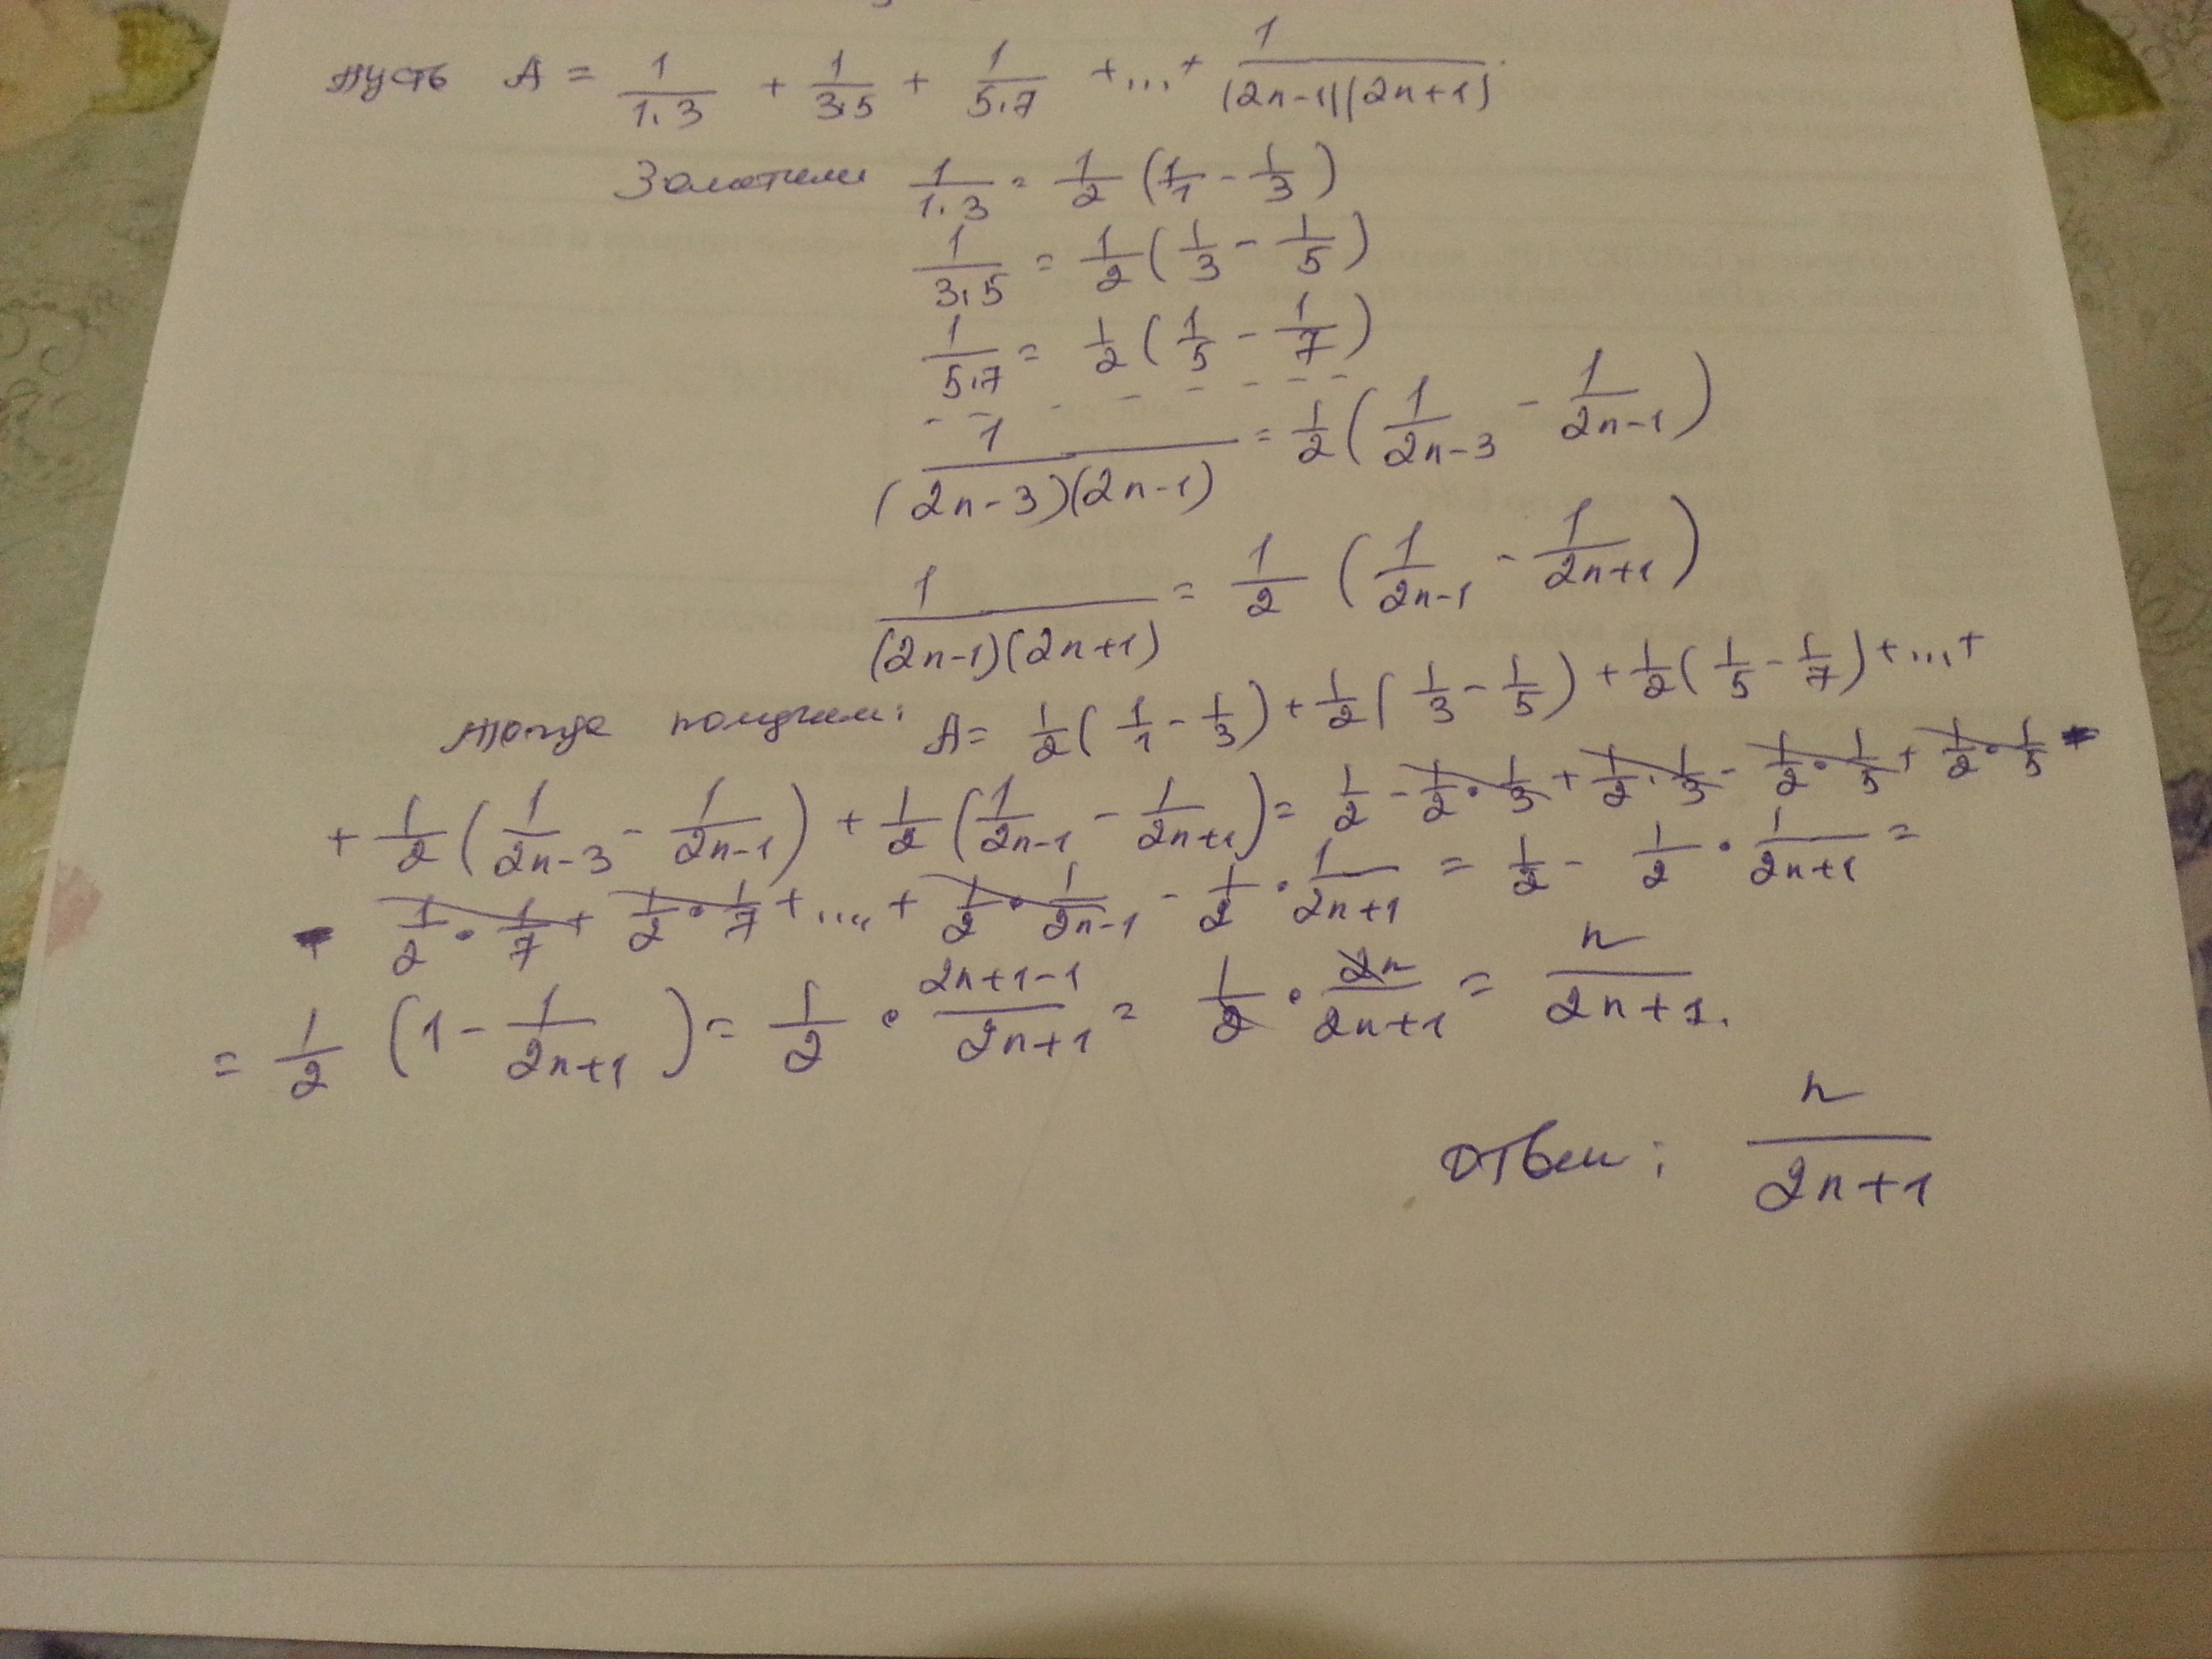 пусть A = 1/(1·3) + 1/(3·5) + 1/(5·7) + ... + 1/((2n-1)(2n+1)).
Заметим 1/(1·3) = 1/2 (1/1 - 1/3)
1/(3·5) = 1/2 (1/3 - 1/5)
1/(5·7) = 1/2 (1/5 - 1/7)
- - - - - - - - -
1/((2n-3)(2n-1)) = 1/2 (1/(2n-3) - 1/(2n-1))
1/((2n-1)(2n+1)) = 1/2 (1/(2n-1) - 1/(2n+1))
тогда получим: A = 1/2 (1/1 - 1/3) + 1/2 (1/3 - 1/5) + 1/2 (1/5 - 1/7) + ... +
+ 1/2 (1/(2n-3) - 1/(2n-1)) + 1/2 (1/(2n-1) - 1/(2n+1)) = 1/2 - 1/2 · 1/3 + 1/2 · 1/3 - 1/2 · 1/5 + 1/2 · 1/5 -
- 1/2 · 1/7 + 1/2 · 1/7 + ... + 1/2 · 1/(2n-1) - 1/2 · 1/(2n+1) = 1/2 - 1/2 · 1/(2n+1) =
= 1/2 (1 - 1/(2n+1)) = 1/2 · (2n+1-1)/(2n+1) = 1/2 · 2n/(2n+1) = n/(2n+1).
Ответ: n/(2n+1)